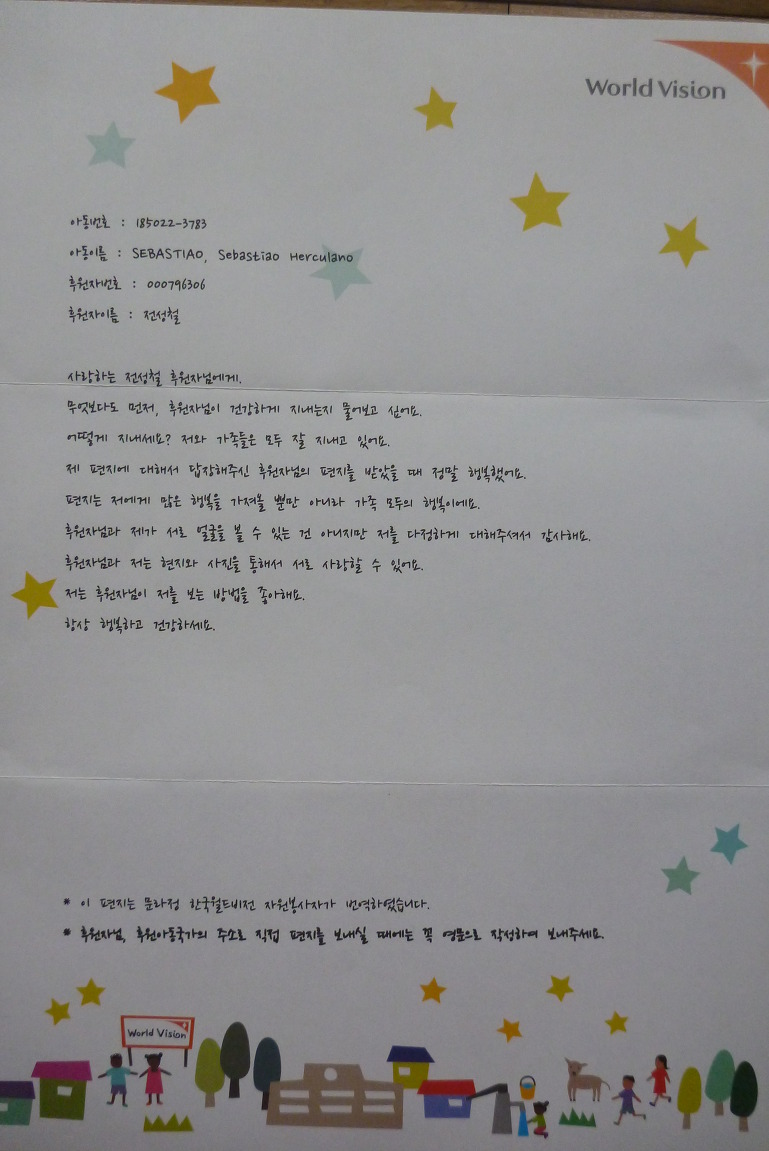 World Vision
아동번호 : 185022-3783
아동이름 : SEBASTIAO, Sebastiao Herculano
후원자번호 : 000796306
후원자이름 : 전성철
사랑하는 전성철 후원자님에게.
무엇보다도 먼저, 후원자님이 건강하게 지내는지 물어보고 싶어요.
어떻게 지내세요? 저와 가족들은 모두 잘 지내고 있어요.
제 편지에 대해서 답장해주신 후원자님의 편지를 받았을 때 정말 행복했어요.
편지는 저에게 많은 행복을 가져올 뿐만 아니라 가족 모두의 행복이에요.
후원자님과 제가 서로 얼굴을 볼 수 있는 건 아니지만 저를 다정하게 대해주셔서 감사해요.
후원자님과 저는 현지와 사진을 통해서 서로 사랑할 수 있어요.
저는 후원자님이 저를 보는 방법을 좋아해요.
항상 행복하고 건강하세요.
* 이 편지는 문라정 한국월드비전 자원봉사자가 번역하였습니다.
* 후원자님, 후원아동국가의 주소로 직접 편지를 보내실 때에는 꼭 영문으로 작성하여 보내주세요.
World Vision